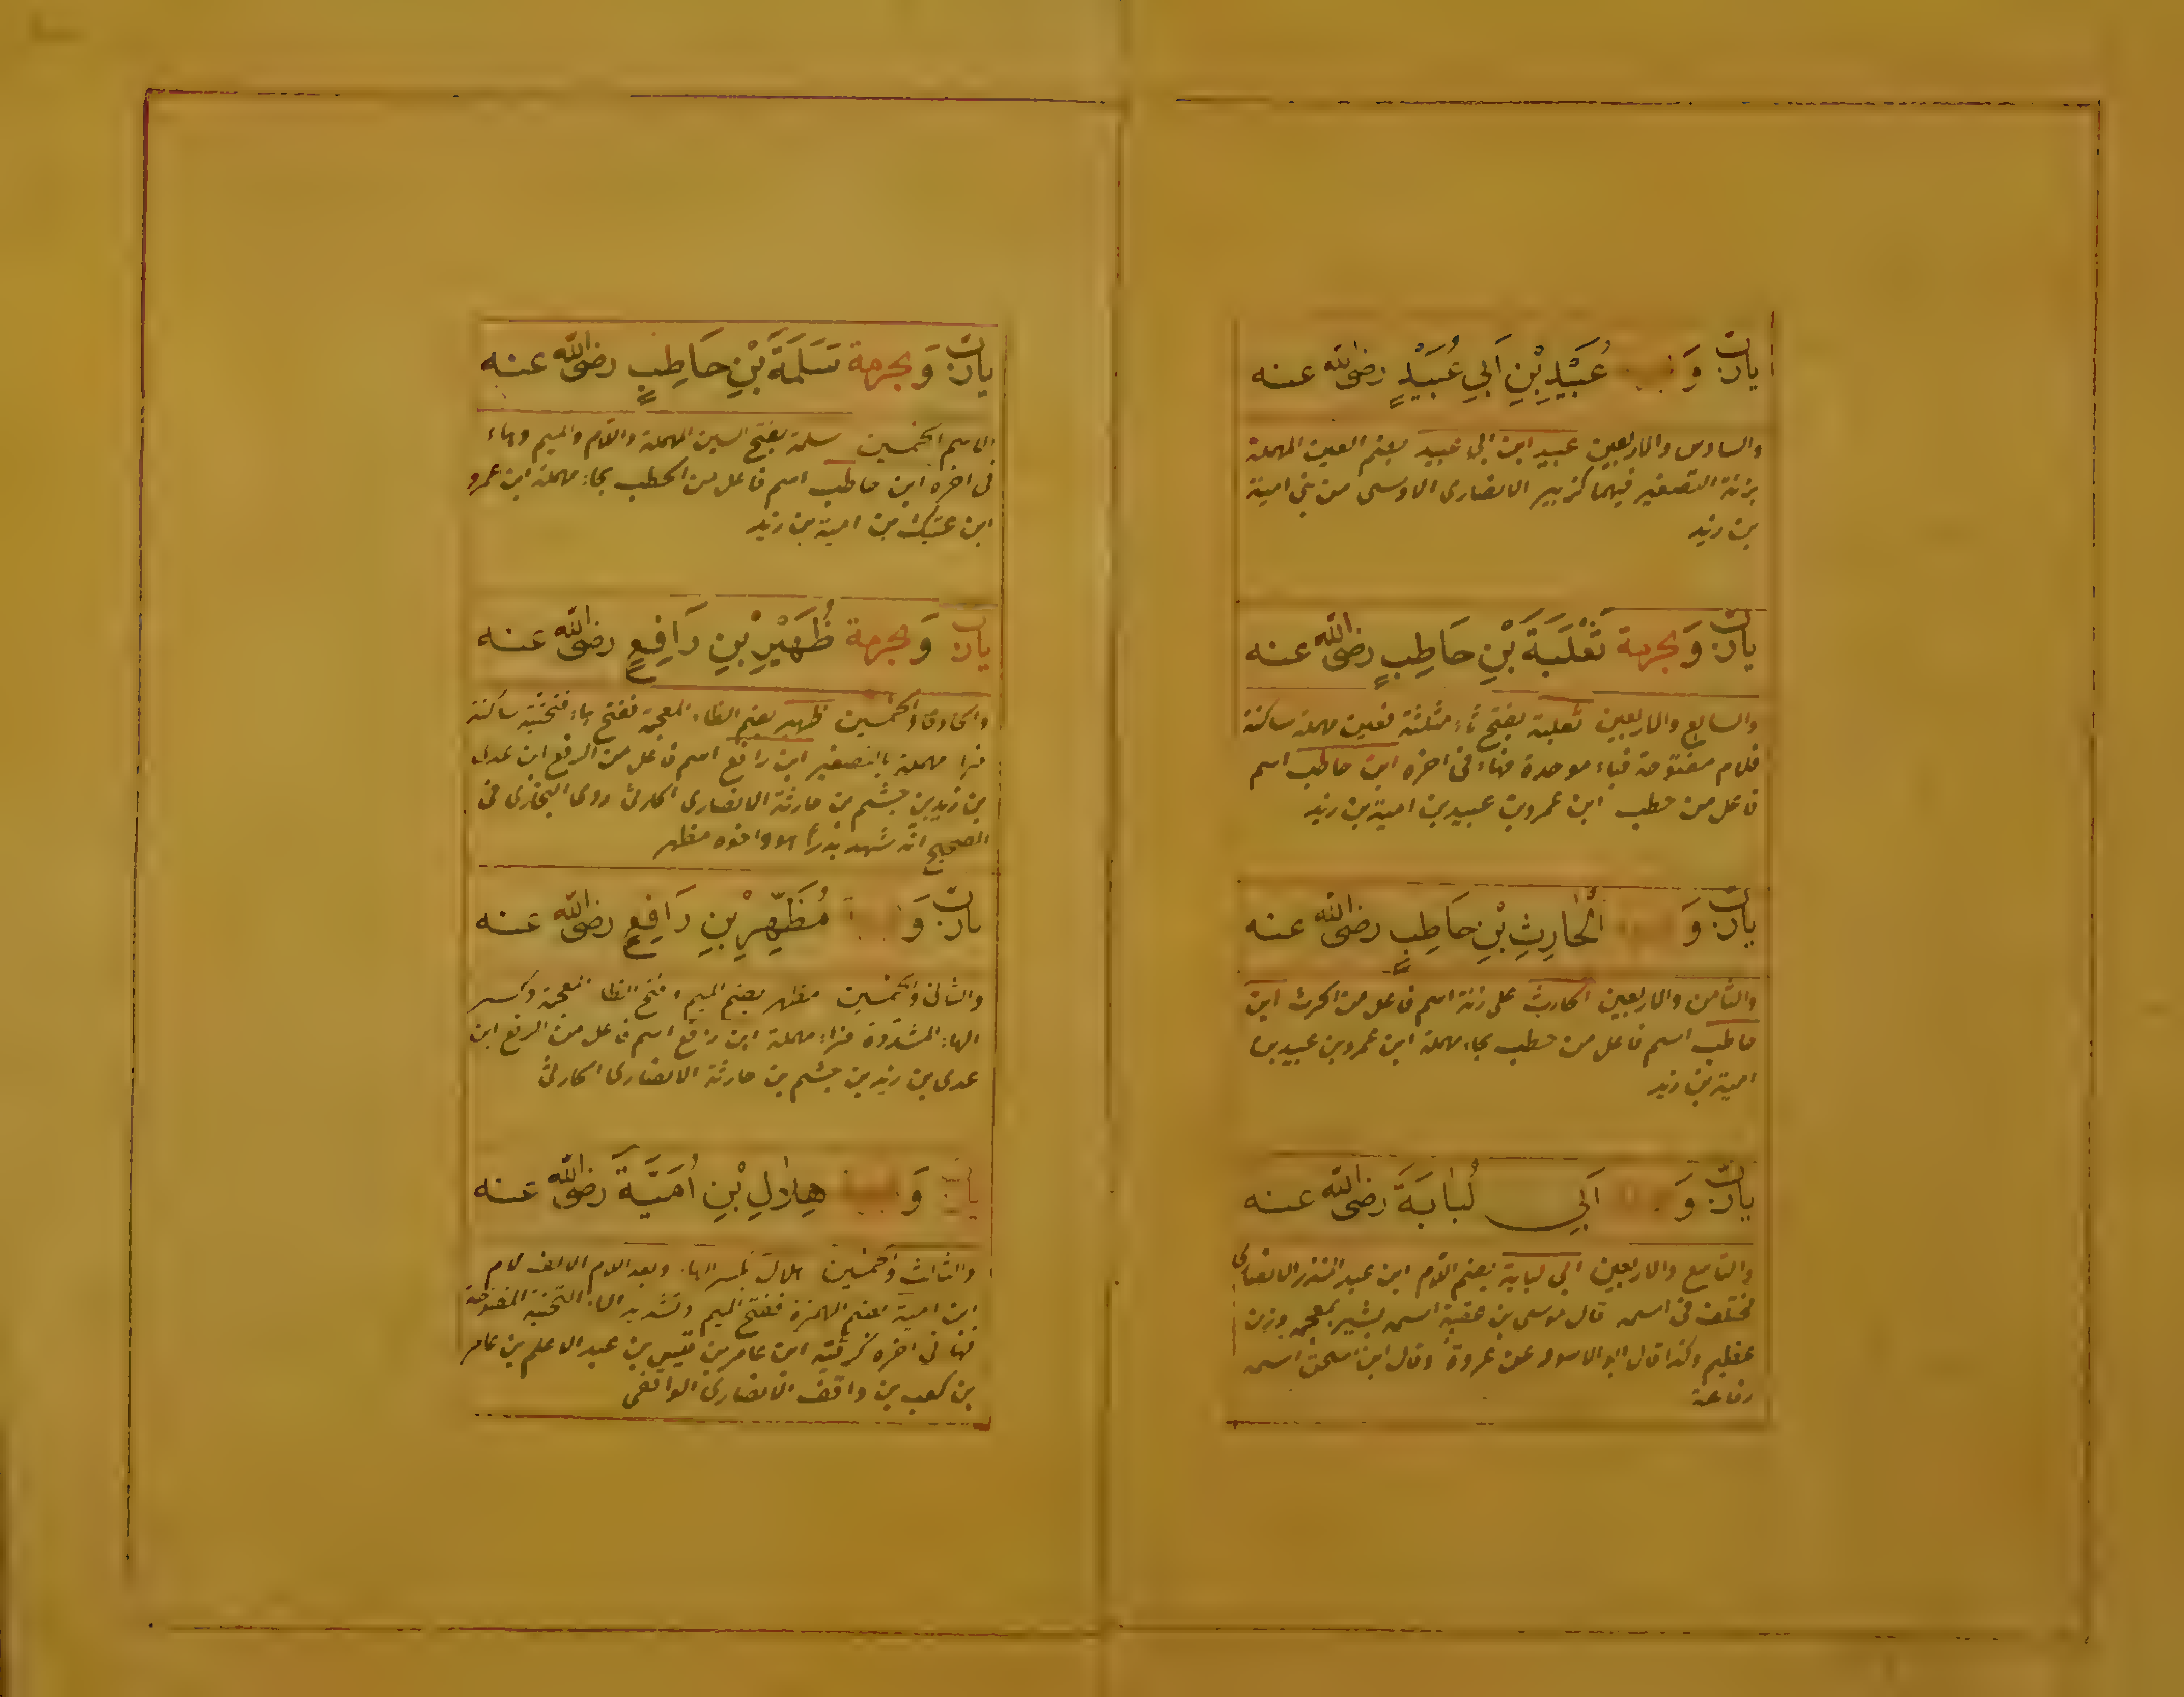 يارب وَ عُبَيْدِ بْنِ اَبِي عُبَيْدٍ رضى الله عنه
والسادس والاربعين عبيد ابن ابى عبيد بضم العين المهملة
بزنة التصغير فيهما كزبير الانصارى الاوسى من بنى امية
بن زيد
يارب وَبجرمة ثَعْلَبَةَ بْنِ حَاطِبٍ رضى الله عنه
والسابع والاربعين ثعلبة بفتح ثاء مثلثة فعين مهملة ساكنة
فلام مفتوحة فباء موحدة فهاء فى اخره ابن حاطب اسم
فاعل من حطب ابن عمرو بن عبيد بن امية بن زيد
يارب وَ الْحَارِثِ بْنِ حَاطِبٍ رضى الله عنه
والثامن والاربعين الحارث على زنة اسم فاعل من الحرث ابن
حاطب اسم فاعل من حطب بحاء مهملة ابن عمرو بن عبيد بن
امية بن زيد
يارب وَ اَبِي لُبَابَةَ رضى الله عنه
والتاسع والاربعين ابى لبابة بضم اللام ابن عبد المنذر الانصارى
مختلف فى اسمه قال موسى بن عقبة اسمه بشير بمعجمة وزن
عظيم وكذا قال ابو الاسود عن عروة وقال ابن اسحق اسمه
رفاعة
يارب وَبجرمة سَلَمَةَ بْنِ حَاطِبٍ رضى الله عنه
الخمسين سلمة بفتح السين المهملة واللام والميم وهاء
فى اخره ابن حاطب اسم فاعل من الحطب بحاء مهملة ابن عمرو
ابن عتيك بن امية بن زيد
يارب وَبجرمة ظُهَيْرِ بْنِ رَافِعٍ رضى الله عنه
والحادى والخمسين ظهير بضم الظاء المعجمة ففتح هاء فتحتية ساكنة
فراء مهملة بالتصغير ابن رافع اسم فاعل من الرفع ابن عدى
بن زيد بن جشم بن حارثة الانصارى الحارثى روى البخارى فى
الصحيح انه شهد بدرا هو واخوه مظهر
يارب وَ مُظَهِّرِ بْنِ رَافِعٍ رضى الله عنه
والثانى والخمسين مظهر بضم الميم وفتح الظاء المعجمة وكسر
الهاء المشددة فراء مهملة ابن رافع اسم فاعل من الرفع ابن
عدى بن زيد بن جشم بن حارثة الانصارى الحارثى
يارب وَ هِلَالِ بْنِ اُمَيَّةَ رضى الله عنه
والثالث والخمسين هلال بكسر الهاء وبعد اللام الالف لام
ابن امية بضم الهمزة ففتح الميم وتشديد الياء التحتية المفتوحة
فهاء فى اخره ابن عامر بن قيس بن عبد الاعلم بن عامر
بن كعب بن واقف الانصارى الواقفى